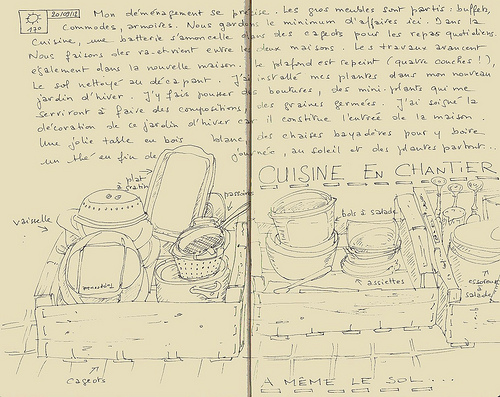 20/09/12 Mon déménagement se précise. Les gros meubles sont partis : buffets,
13° Commodes, armoires. Nous gardons le minimum d'affaires ici. Dans la
Cuisine, une batterie s'amoncelle dans des cageots pour les repas quotidiens.
Nous faisons des va-et-vient entre les deux maisons. Les travaux avancent
également dans la nouvelle maison. Le plafond est repeint (quatre couches !),
Le sol nettoyé au décapant. J'ai installé mes plantes dans mon nouveau
jardin d'hiver. J'y fais pousser des boutures, des mini-plants qui me
serviront à faire des compositions, des graines germées. J'ai soigné la
décoration de ce jardin d'hiver car il constitue l'entrée de la maison.
Une jolie table en bois blanc, des chaises bayadères pour y boire
un thé en fin de journée, au soleil et des plantes partout...
CUISINE EN CHANTIER
plat
à gratin
passoire
vaisselle
bols à salade
assiettes
essoreuse
à
salade
cageots
A MÊME LE SOL...